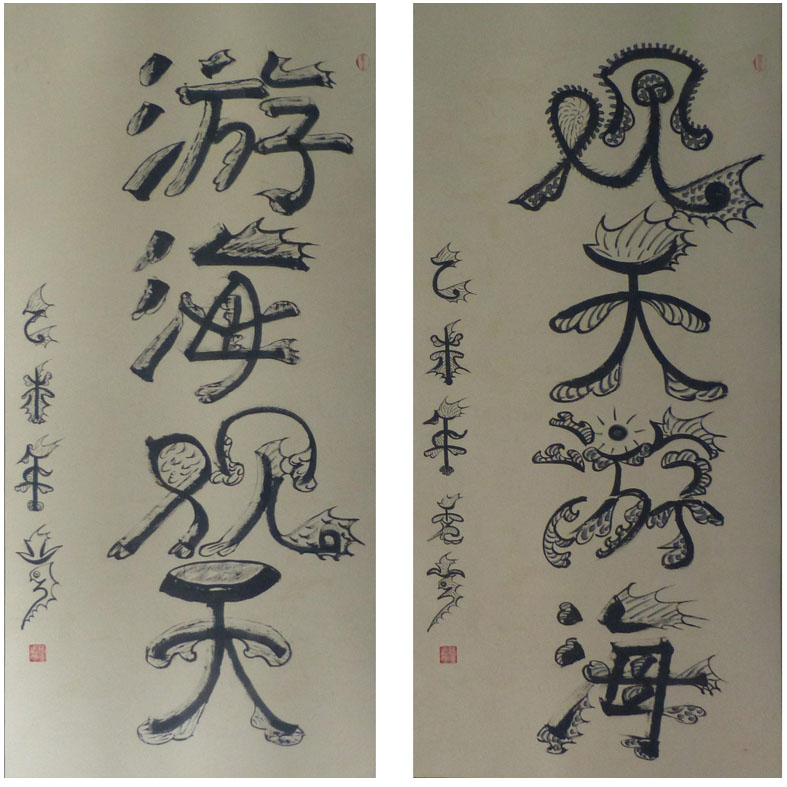 游海观天
乙未年
观天游海
乙未年